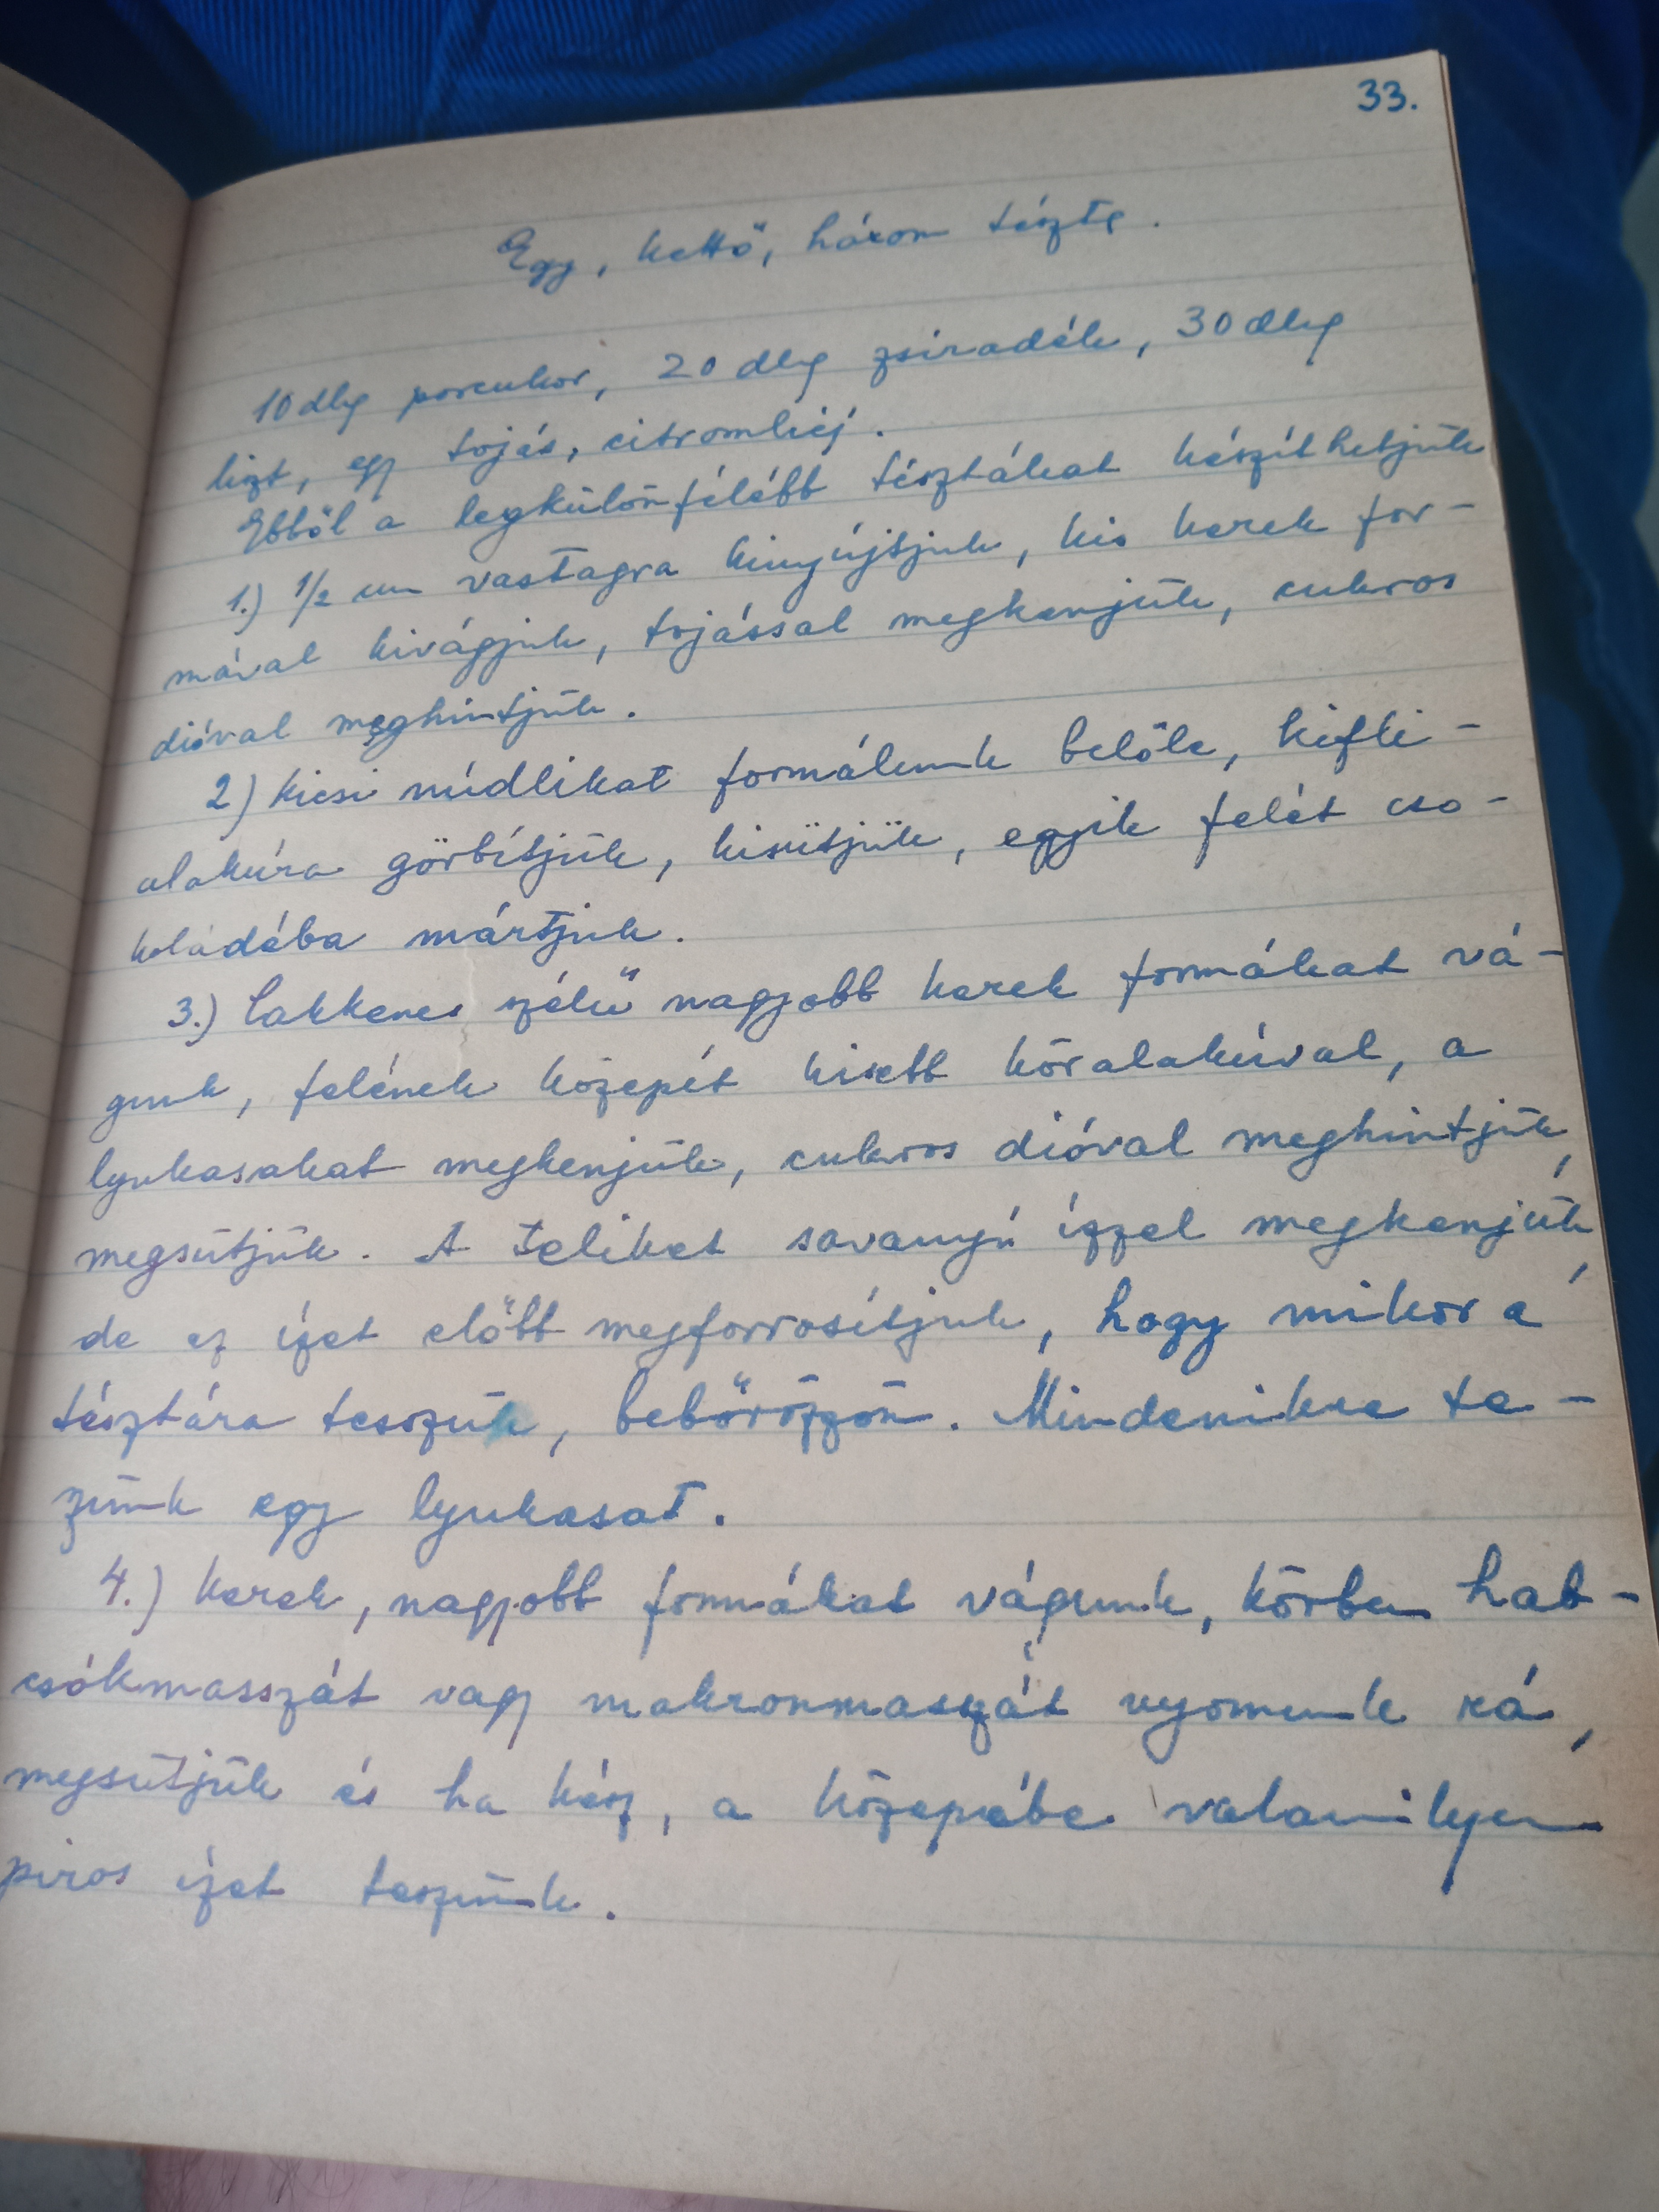 33.
Egy, kettő, három tészta.
10 dkg porcukor, 20 dkg zsiradék, 30 dkg
liszt, egy tojás, citromhéj.
Ebből a legkülönfélébb tésztákat készíthetjük
1.) 1/2 cm vastagra kinyújtjuk, kis kerek for-
mával kivágjuk, tojással megkenjük, cukros
dióval meghintjük.
2) Kicsi núdlikat formálunk belőle, kifli-
alakúra görbítjük, kisütjük, egyik felét cso-
koládéba mártjuk.
3.) Cakkenes szélű nagyobb kerek formákat vá-
gunk, felének közepét kisebb köralakúval, a
lyukasakat megkenjük, cukros dióval meghintjük,
megsütjük. A teliket savanyú ízzel megkenjük,
de ez ízet előbb megforrosítjuk, hogy mikor a
tésztára tesszük, bebőrözzön. Mindenikre te-
szünk egy lyukasat.
4.) Kerek, nagyobb formákat vágunk, körben hab-
csókmasszát vagy makronmasszát nyomunk rá,
megsütjük és ha kész, a közepébe valamilyen
piros ízet teszünk.